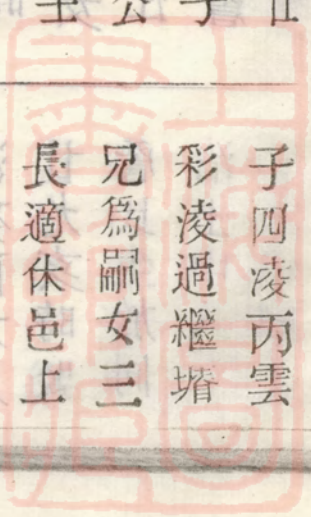 子四凌丙雲
彩淩過繼堉
兄為嗣女三
長適休邑上